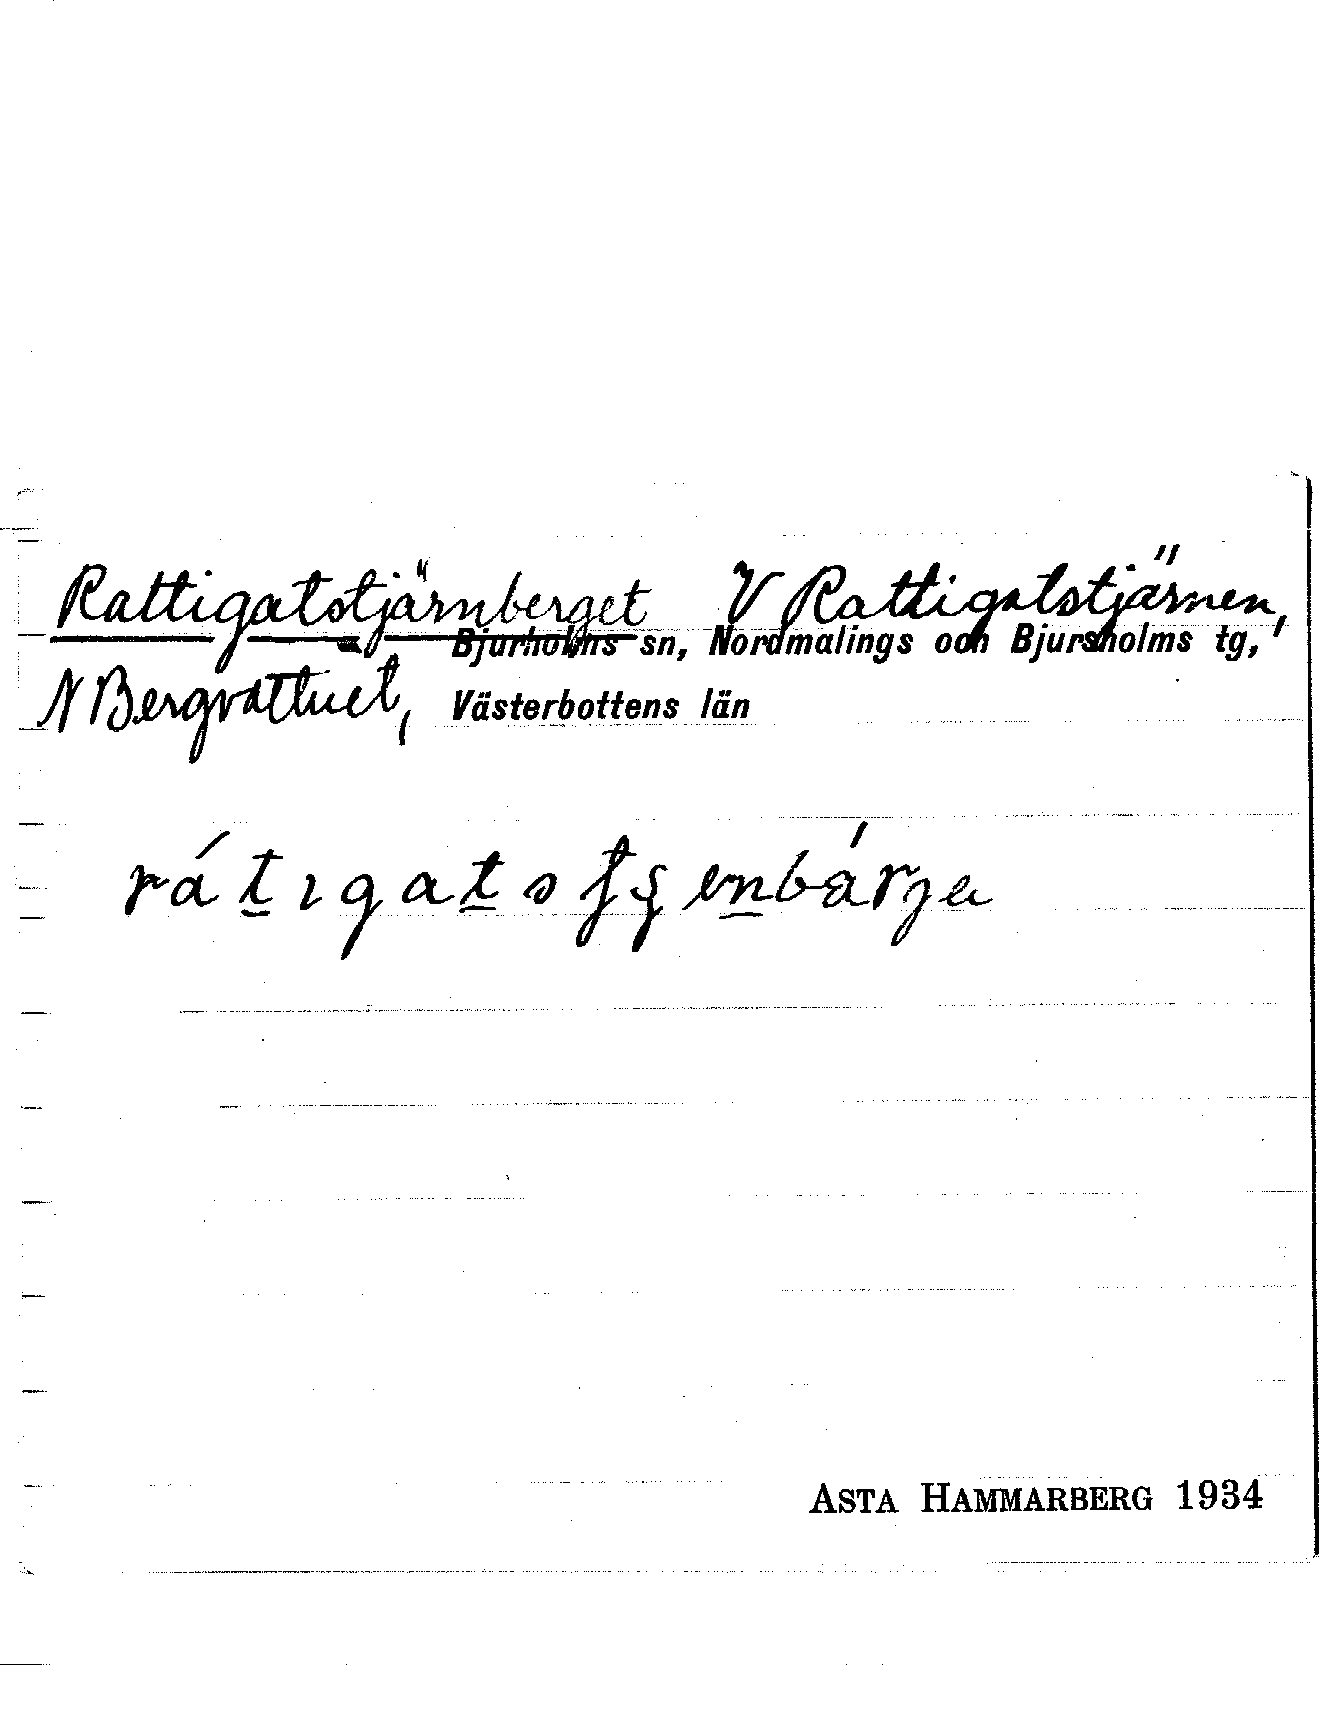 Rattigatstjärnberget V Rattigatstjärnen,
Bjurholms sn, Nordmalings och Bjursholms tg,
N Bergvattnet, Västerbottens län
Asta Hammarberg 1934